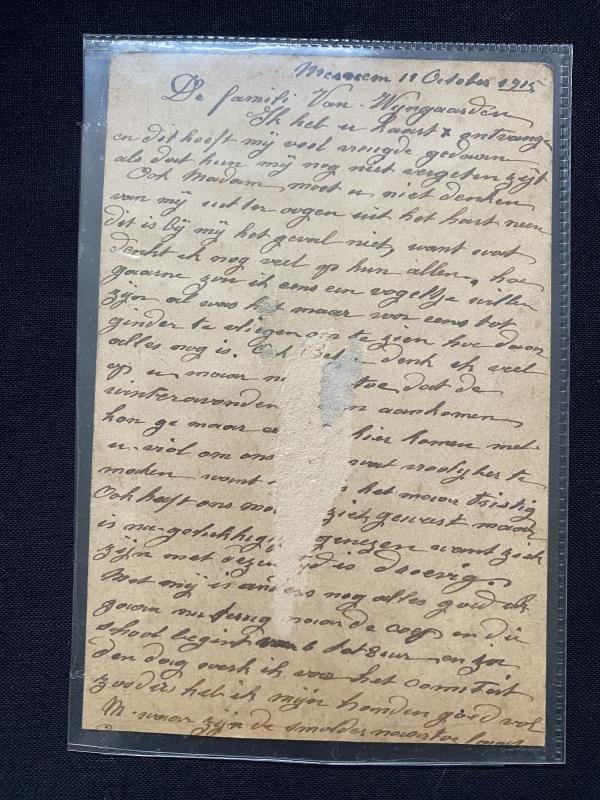 11 October 1915
De famili Van Wyngaarden
Ik heb u kaart x ontvang-
en dit heeft mij veel vreugde gedaan
als dat hun mij nog niet vergeten zijt
Ook Madam moet u niet denken
van mij uit ter oogen uit het hart neen
dit is bij mij het geval niet, want wat
denkt ik nog veel op hun allen, hoe
gaarne zou ik eens een vogeltje willen
zijn al was het maar voor eens tot
ginder te vliegen om te zien hoe daar
alles nog is. denk ik veel
op u maar toe dat de
winteravonden aankomen
kon ge maar hier komen met
u viol om ons wat vroolijker te
maken want het maar tristig
Ook heeft ons ziek geweest maar
is nu genezen want ziek
zijn met deze tijd is droevig.
Met mij is anders nog alles goed
gaan nu terug naar de en die
school begint 6 tot 8 uur en
den dag werk ik voor het Comiteit
zoodus heb ik mijn handen goed vol
M. waar zijn de smolders naartoe